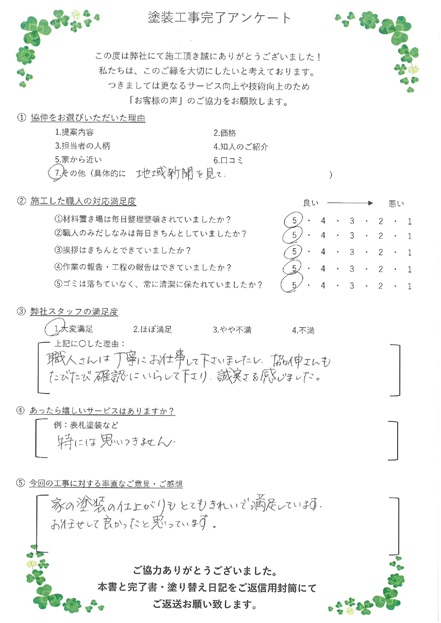 塗装工事完了アンケート
この度は弊社にて施工頂き誠にありがとうございました！
私たちは、このご縁を大切にしたいと考えております。
つきましては更なるサービス向上や技術向上のため
「お客様の声」のご協力をお願致します。
① 協伸をお選びいただいた理由
1.提案内容 2.価格
3.担当者の人柄 4.知人のご紹介
5.家から近い 6.口コミ
7.その他（具体的に 地域新聞を見て。 ）
② 施工した職人の対応満足度 良い 悪い
①材料置き場は毎日整理整頓されていましたか？ 5・4・3・2・1
②職人のみだしなみは毎日きちんとしていましたか？ 5・4・3・2・1
③挨拶はきちんとできていましたか？ 5・4・3・2・1
④作業の報告・工程の報告はできていましたか？ 5・4・3・2・1
⑤ゴミは落ちていなく、常に清潔に保たれていましたか？ 5・4・3・2・1
③ 弊社スタッフの満足度
1.大変満足 2.ほぼ満足 3.やや不満 4.不満
上記に○した理由：
職人さんは丁寧にお仕事して下さいましたし、協伸さんも
たびたび確認にいらして下さり、誠実さを感じました。
④ あったら嬉しいサービスはありますか？
例：表札塗装など
特には思いつきません。
⑤ 今回の工事に対する率直なご意見・ご感想
家の塗装の仕上がりもとてもきれいで満足しています。
お任せして良かったと思っています。
ご協力ありがとうございました。
本書と完了書・塗り替え日記をご返信用封筒にて
ご返送お願い致します。